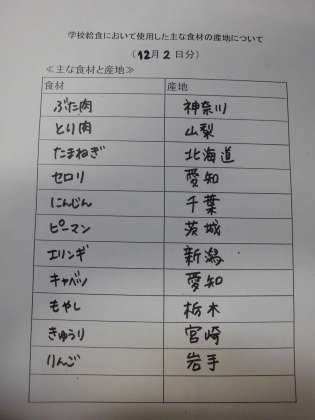 学校給食において使用した主な食材の産地について
（12月2日分）
≪主な食材と産地≫
食材 産地
ぶた肉 神奈川
とり肉 山梨
たまねぎ 北海道
セロリ 愛知
にんじん 千葉
ピーマン 茨城
エリンギ 新潟
キャベツ 愛知
もやし 栃木
きゅうり 宮崎
りんご 岩手